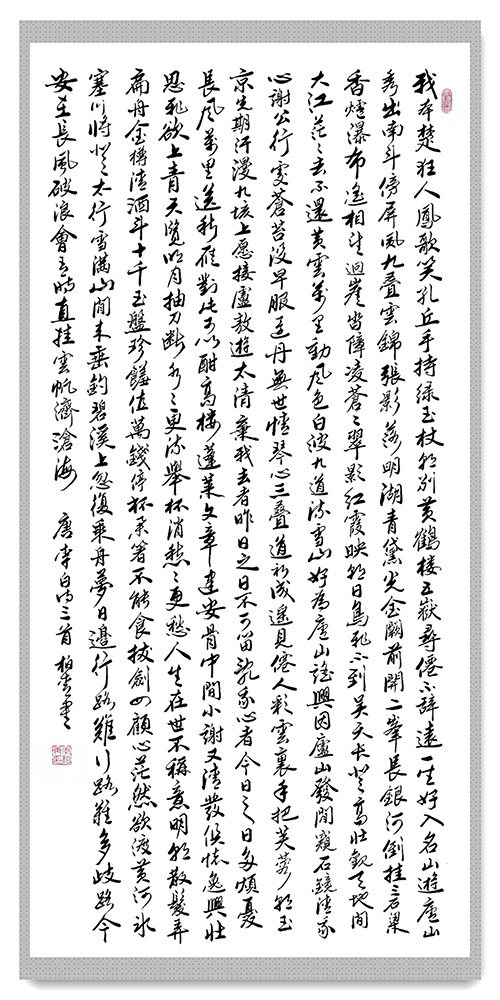 我本楚狂人鳳歌笑孔丘手持綠玉杖朝別黃鶴樓五嶽尋僊不辭遠一生好入名山遊廬山
秀出南斗傍屏風九疊雲錦張影落明湖青黛光金闕前開二峯長銀河倒挂三石梁
香爐瀑布遙相望迴崖沓障凌蒼蒼翠影紅霞映朝日鳥飛不到吳天長登高壯觀天地間
大江茫茫去不還黃雲萬里動風色白波九道流雪山好為廬山謠興因廬山發閒窺石鏡清我
心謝公行處蒼苔沒早服還丹無世情琴心三疊道初成遙見僊人彩雲裏手把芙蓉朝玉
京先期汗漫九垓上愿接盧敖遊太清棄我去者昨日之日不可留亂我心者今日之日多煩憂
長風萬里送秋雁對此可以酣高樓蓬萊文章建安骨中間小謝又清發俱懷逸興壯
思飛欲上青天覽明月抽刀斷水水更流舉杯消愁愁更愁人生在世不稱意明朝散髮弄
扁舟金樽清酒斗十千玉盤珍饈值萬錢停杯投箸不能食拔劍四顧心茫然欲渡黃河冰
塞川將登太行雪滿山閒來垂釣碧溪上忽復乘舟夢日邊行路難行路難多歧路今
安在長風破浪會有時直挂雲帆濟滄海 唐李白詩三首 柏青書